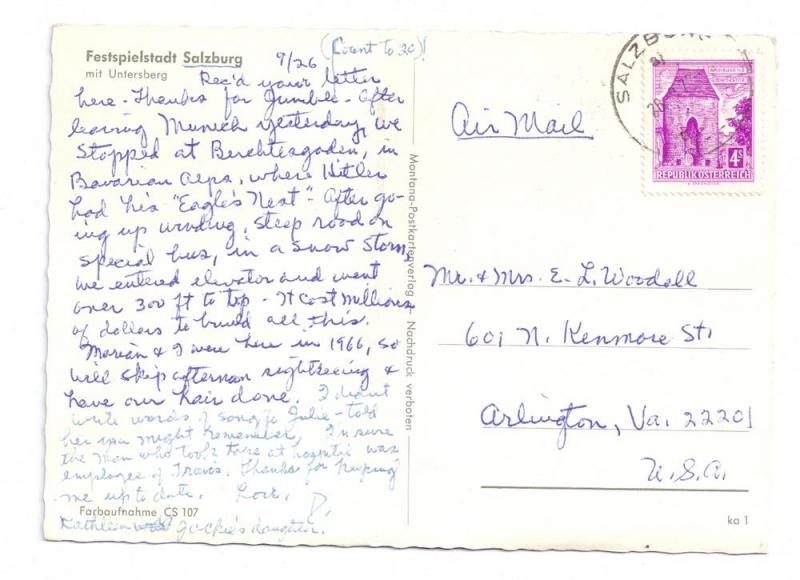 Festspielstadt Salzburg
mit Untersberg
9/26
(Count to 20)!
Rec'd your letter
here - Thanks for Jumble - After
leaving Munich yesterday, we
stopped at Berchtesgaden, in
Bavarian Alps, where Hitler
had his "Eagle's Nest" - After go-
ing up winding, steep road on
special bus, in a snow storm,
we entered elevator and went
over 300 ft to top - It cost millions
of dollars to build all this.
Marian & I were here in 1966, so
will skip afternoon sightseeing &
have our hair done. I didn't
write words of song to Julie - told
her you might remember, I'm sure
the man who took at hospital was
employee of Travis. Thanks for keeping
me up to date. Love, D.
Farbaufnahme CS 107
Kathleen daughter.
Montana-Postkartenverlag - Nachdruck verboten
SALZBURG
4S
REPUBLIK ÖSTERREICH
Air Mail
Mr. & Mrs. E. L. Woodall
601 N. Kenmore St.
Arlington, Va. 22201
U.S.A.
ka 1